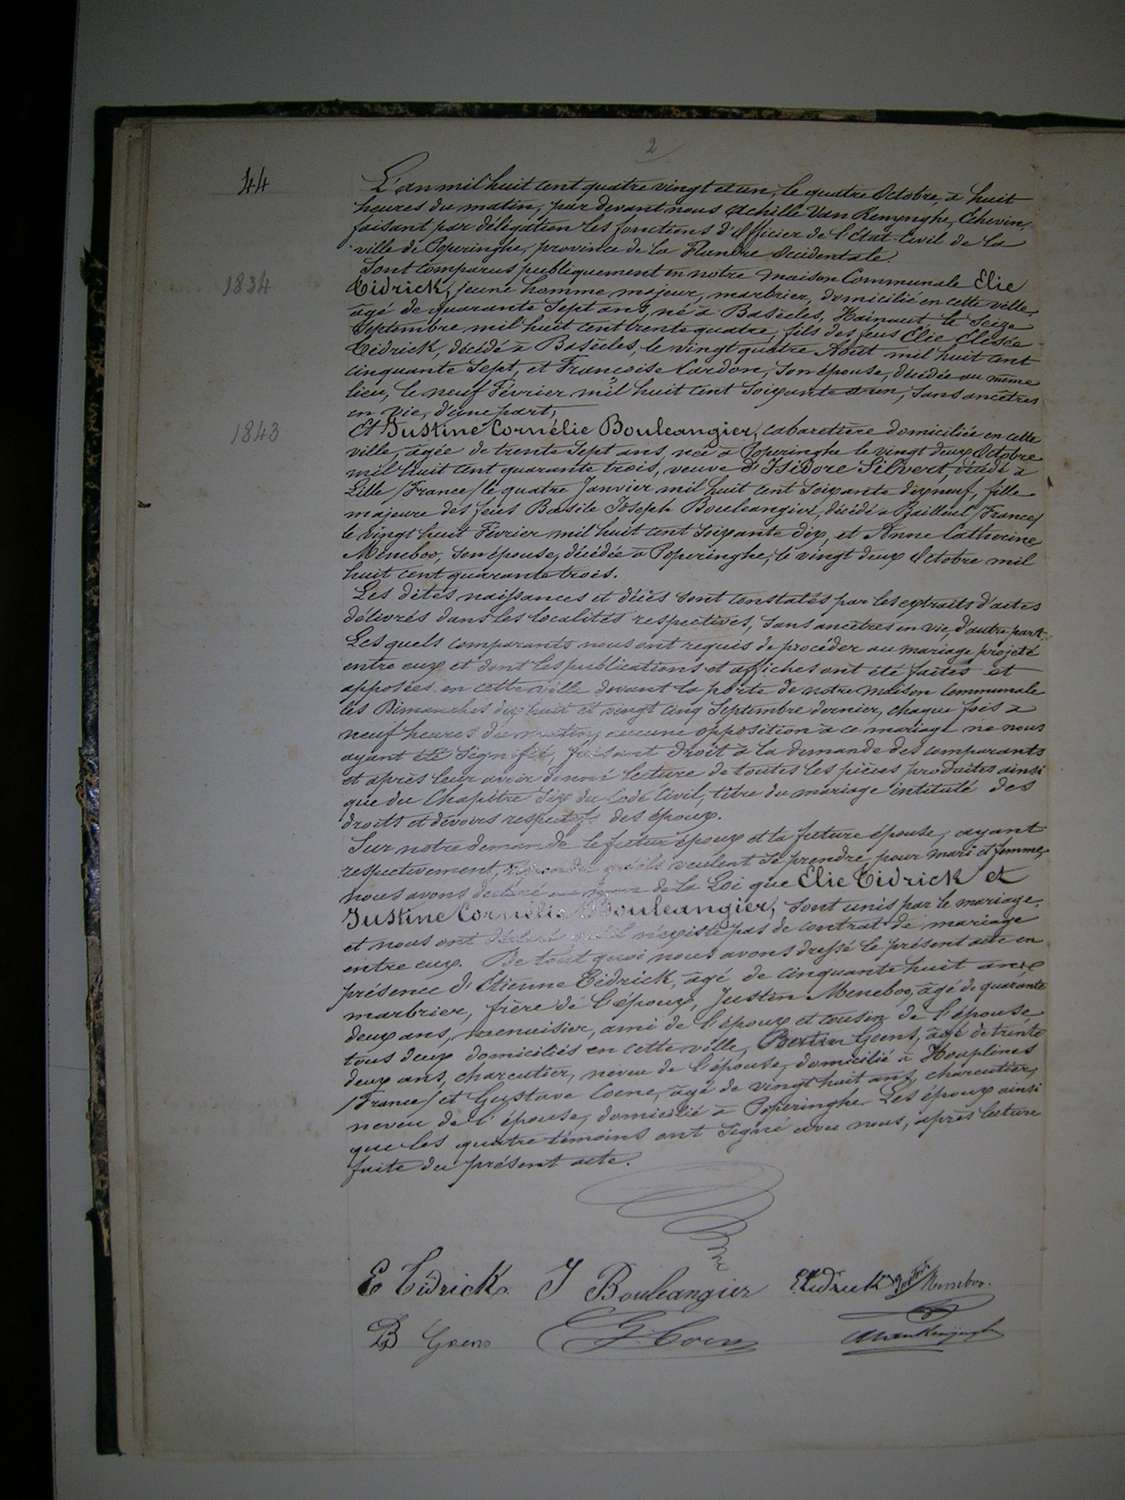 2
44
L'an mil huit cent quatre vingt et un, le quatre Octobre, à huit
heures du matin, par devant nous Achille Van Renynghe, Echevin,
faisant par délégation les fonctions d'Officier de l'état Civil de la
ville de Poperinghe, province de la Flandre Occidentale.
Sont comparus publiquement en notre maison Communale Elie
1834
Tidrick, jeune homme majeur, marbrier, domicilié en cette ville,
âgé de quarante Sept ans, né à Basècles, Hainaut le Seize
Septembre mil huit cent trente quatre, fils des feus Elie Elisée
Tidrick, décédé à Basècles, le vingt quatre Août mil huit cent
cinquante Sept, et Françoise Cardon, Son épouse, décédée au même
lieu, le neuf Février mil huit cent Soixante et un, Sans ancêtres
en vie, d'une part,
1843
Et Justine Cornélie Bouleangier, cabaretière domiciliée en cette
ville, âgée de trente Sept ans, née à Poperinghe le vingt deux Octobre
mil huit cent quarante trois, veuve d'Isidore Silvert, décédé à
Lille /France/ le quatre Janvier mil huit cent Soixante dix neuf, fille
majeure des feus Basile Joseph Bouleangier, décédé à Bailleul /France/
le vingt huit Février mil huit cent Soixante dix, et Anne Catherine
Meneboo, Son épouse, décédée à Poperinghe, le vingt deux Octobre mil
huit cent quarante trois.
Les dites naissances et décès sont constatés par les extraits d'actes
délivrés dans les localités respectives, Sans ancêtres en vie, d'autre part.
Les quels comparants nous ont requis de procéder au mariage projeté
entre eux et dont les publications et affiches ont été faites et
apposées en cette ville devant la porte de notre maison Communale
les Dimanches dix huit et vingt cinq Septembre dernier, chaque fois à
neuf heures du matin, aucune opposition à ce mariage ne nous
ayant été Signifiée, faisant droit à la demande des comparants
et après leur avoir donné lecture de toutes les pièces produites ainsi
que du Chapitre Six du Code Civil, titre du mariage intitulé des
droits et devoirs respectifs des époux.
Sur notre demande le futur époux et la future épouse, ayant
respectivement, répondu qu'ils veulent Se prendre pour mari et femme,
nous avons déclaré au nom de la Loi que Elie Tidrick et
Justine Cornélie Bouleangier, Sont unis par le mariage.
et nous ont déclaré qu'il n'existe pas de contrat de mariage
entre eux. De tout quoi nous avons dressé le présent acte en
présence d'Etienne Tidrick, âgé de cinquante huit ans
marbrier, frère de l'époux, Justin Meneboo, âgé de quarante
deux ans, menuisier, ami de l'époux et cousin de l'épouse
tous deux domiciliés en cette ville, Bertin Goens, âgé de trente
deux ans, charcutier, neveu de l'épouse, domicilié à Houplines
/France/ et Gustave Coene, âgé de vingt huit ans, charcutier,
neveu de l'épouse, domicilié à Poperinghe. Les époux ainsi
que les quatre témoins ont Signé avec nous, après lecture
faite du présent acte.
E Tidrick J Bouleangier E Tidrick Meneboo.
B Goens G Coene AVanRenynghe